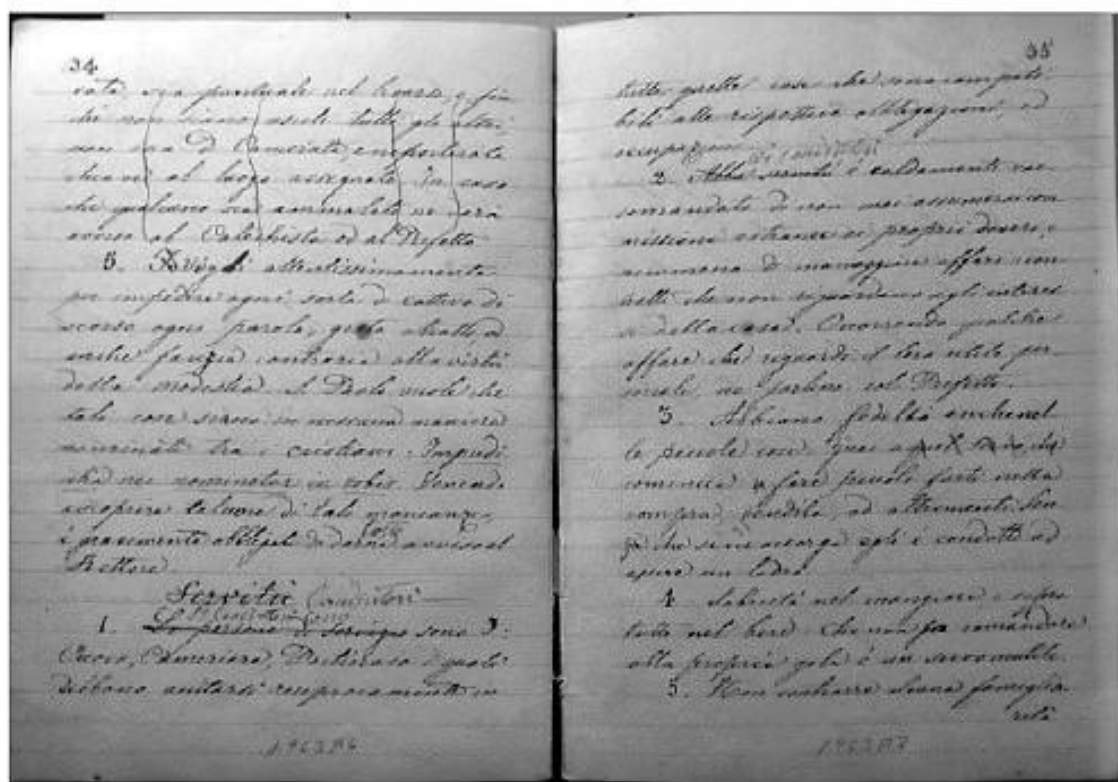 34
rata sia puntuale nel
che non siano usciti tutti gli altri,
non esca di Camerata, e ne porterà la
chiave al luogo assegnato. In caso
che qualcuno sia ammalato ne darà
avviso al Catechista od al Prefetto
5. Vegli attentissimamente
per impedire ogni sorta di cattivo di
scorso ogni parola, gesto
anche facezia contraria alla virtù
della modestia. S. Paolo vuole che
tali cose siano in nessuna maniera
nominate tra i cristiani. Impudi
citia nec nominetur in vobis.
scoprire taluno di tali mancanze,
è gravemente obbligato di darne avviso al
Rettore.
Servitù Coadiutori
1. Le persone di servizio sono 3:
Cuoco, Cameriere, Portinaio i quali
debbono aiutarsi reciprocamente in
196387 6
35
tutte quelle cose che sono compati
bili alle rispettive obbligazioni, ed
occupazioni
Ai coadiutori
2. Alla servitù è caldamente rac
comandato di non mai assumersi com
missioni estranee ai proprii doveri, e
nemmeno di maneggiare affari con
che non riguardano agli interes
si della casa. Occorrendo qualche
affare che riguardi il loro utile per
sonale, ne parlino col Prefetto.
3. Abbiano fedeltà anche nel
le piccole cose. Guai a quel servo che
comincia a fare piccoli furti nella
compra, vendita, od altrimenti. Sen
za che se ne accorga egli è condotto ad
essere un ladro.
4. Sobrietà nel mangiare e sopra
tutto nel bere. Chi non sa comandare
alla propria gola è un servo inutile.
5. Non contrarre alcuna famiglia
rità